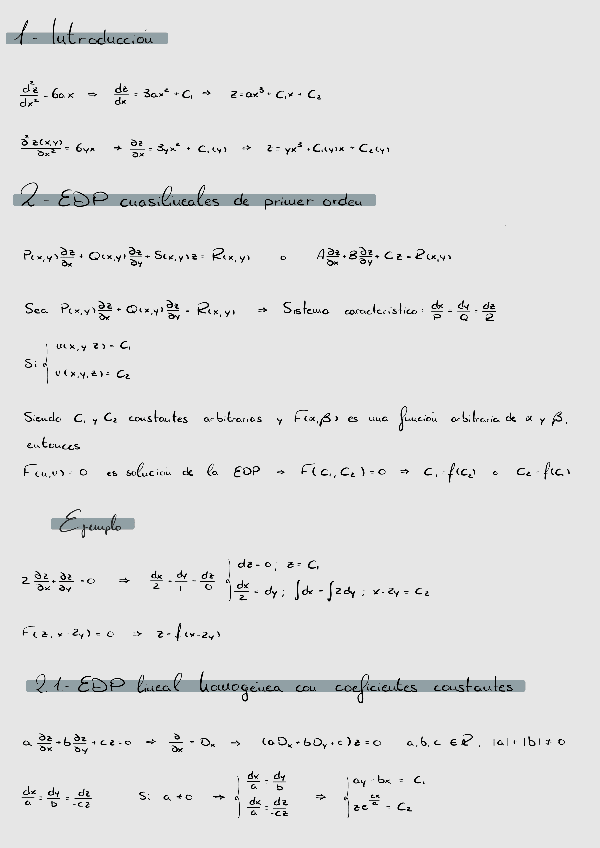 1- Introducción
d²z/dx² = 6ax ⇒ dz/dx = 3ax² + C₁ → z = ax³ + C₁x + C₂
∂²z(x,y)/∂x² = 6yx → ∂z/∂x = 3yx² + C₁(y) → z = yx³ + C₁(y)x + C₂(y)
2- EDP cuasilineales de primer orden
P(x,y)∂z/∂x + Q(x,y)∂z/∂y + S(x,y)z = R(x,y) o A∂z/∂x + B∂z/∂y + Cz = R(x,y)
Sea P(x,y)∂z/∂x + Q(x,y)∂z/∂y = R(x,y) ⇒ Sistema característico: dx/P = dy/Q = dz/R
Si { u(x,y,z) = C₁
v(x,y,z) = C₂
Siendo C₁ y C₂ constantes arbitrarias y F(α,β) es una función arbitraria de α y β,
entonces
F(u,v) = 0 es solución de la EDP → F(C₁,C₂) = 0 ⇒ C₁ = f(C₂) o C₂ = f(C₁)
Ejemplo
2 ∂z/∂x + ∂z/∂y = 0 ⇒ dx/2 = dy/1 = dz/0 { dz = 0; z = C₁
dx/2 = dy; ∫dx = ∫2dy; x-2y = C₂
F(z, x-2y) = 0 → z = f(x-2y)
2.1- EDP lineal homogénea con coeficientes constantes
a ∂z/∂x + b ∂z/∂y + cz = 0 ⇒ ∂/∂x = Dx → (aDx + bDy + c)z = 0 a,b,c ∈ ℝ, |a| + |b| ≠ 0
dx/a = dy/b = dz/-cz Si a ≠ 0 → { dx/a = dy/b ⇒ { ay - bx = C₁
dx/a = dz/-cz ze^(cx/a) = C₂